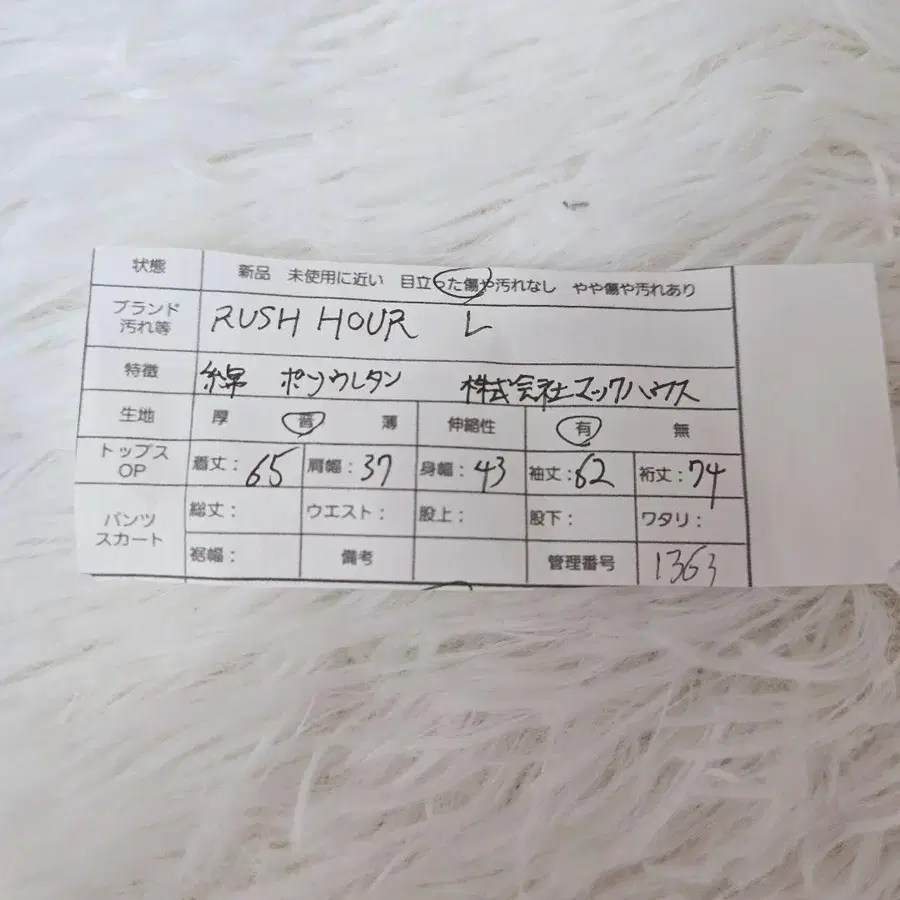 状態 新品 未使用に近い 目立った傷や汚れなし やや傷や汚れあり
ブランド
汚れ等 RUSH HOUR L
特徴 綿 ポリウレタン 株式会社マックハウス
生地 厚 普 薄 伸縮性 有 無
トップス
OP 着丈: 65 肩幅: 37 身幅: 43 袖丈: 62 裄丈: 74
パンツ
スカート 総丈: ウエスト: 股上: 股下: ワタリ:
裾幅: 備考 管理番号 1363